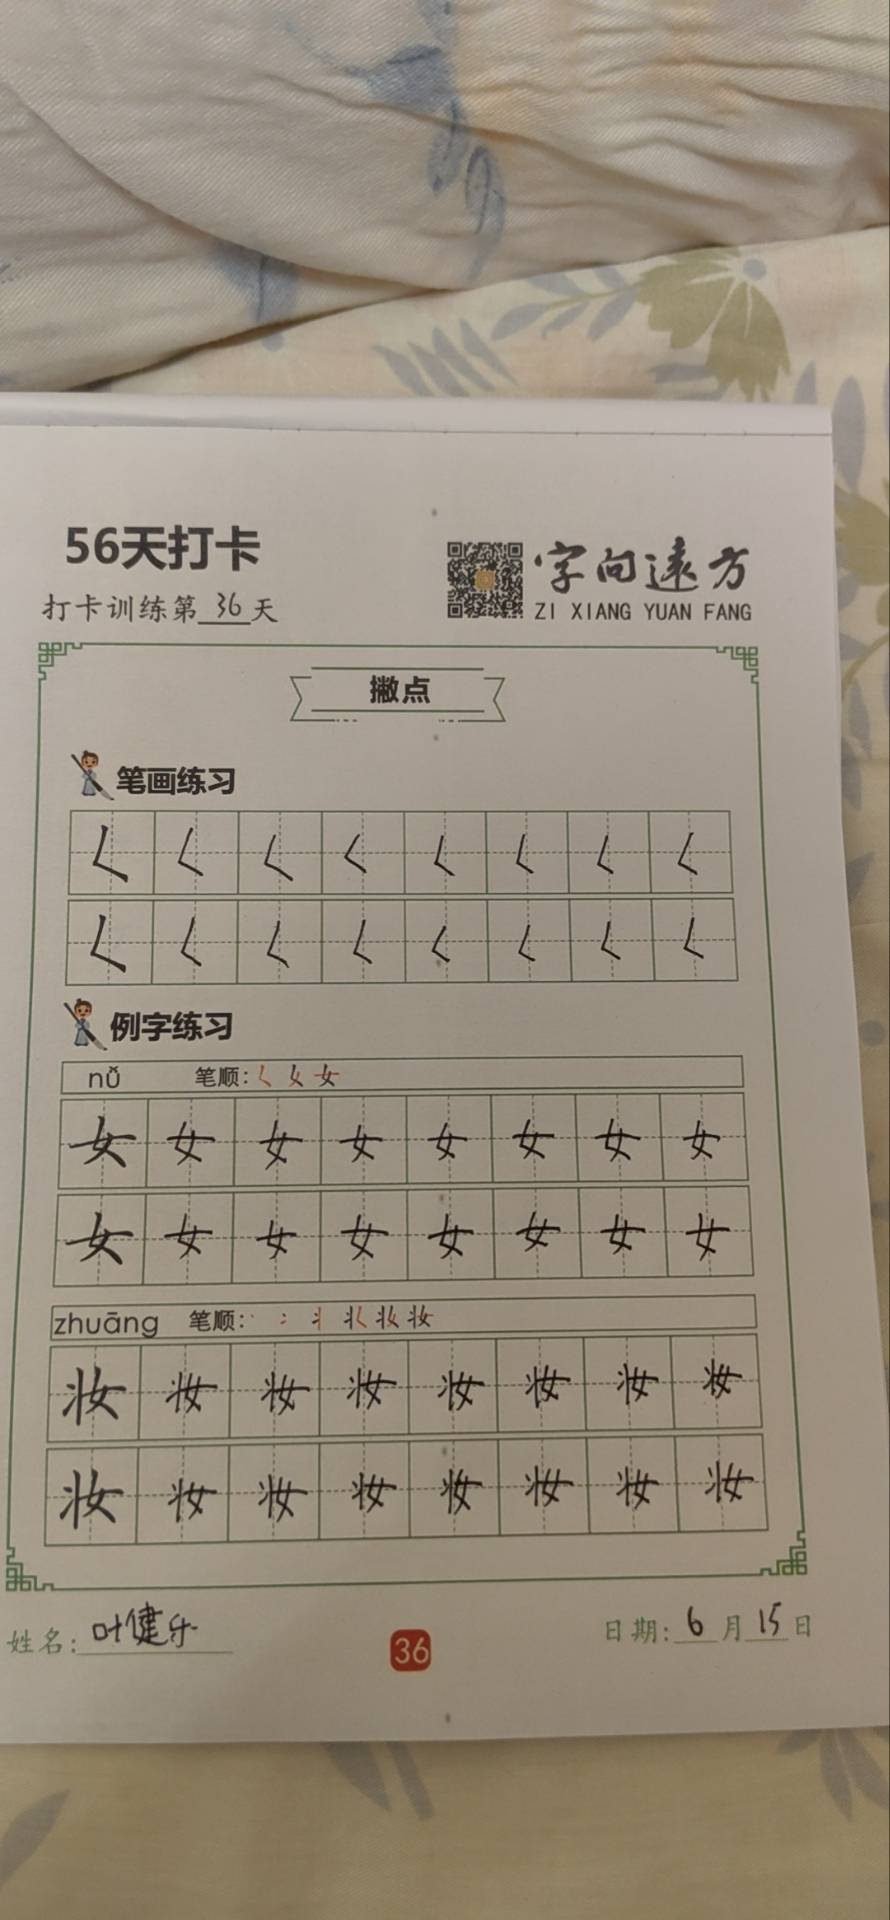 56天打卡
打卡训练第36天
字向远方
ZI XIANG YUAN FANG
撇点
笔画练习
𡿨 𡿨 𡿨 𡿨 𡿨 𡿨 𡿨 𡿨
𡿨 𡿨 𡿨 𡿨 𡿨 𡿨 𡿨 𡿨
例字练习
nǚ 笔顺:𡿨 女
女 女 女 女 女 女 女 女
女 女 女 女 女 女 女 女
zhuāng 笔顺: 妆
妆 妆 妆 妆 妆 妆 妆 妆
妆 妆 妆 妆 妆 妆 妆 妆
姓名:叶健乐
36
日期:6月15日